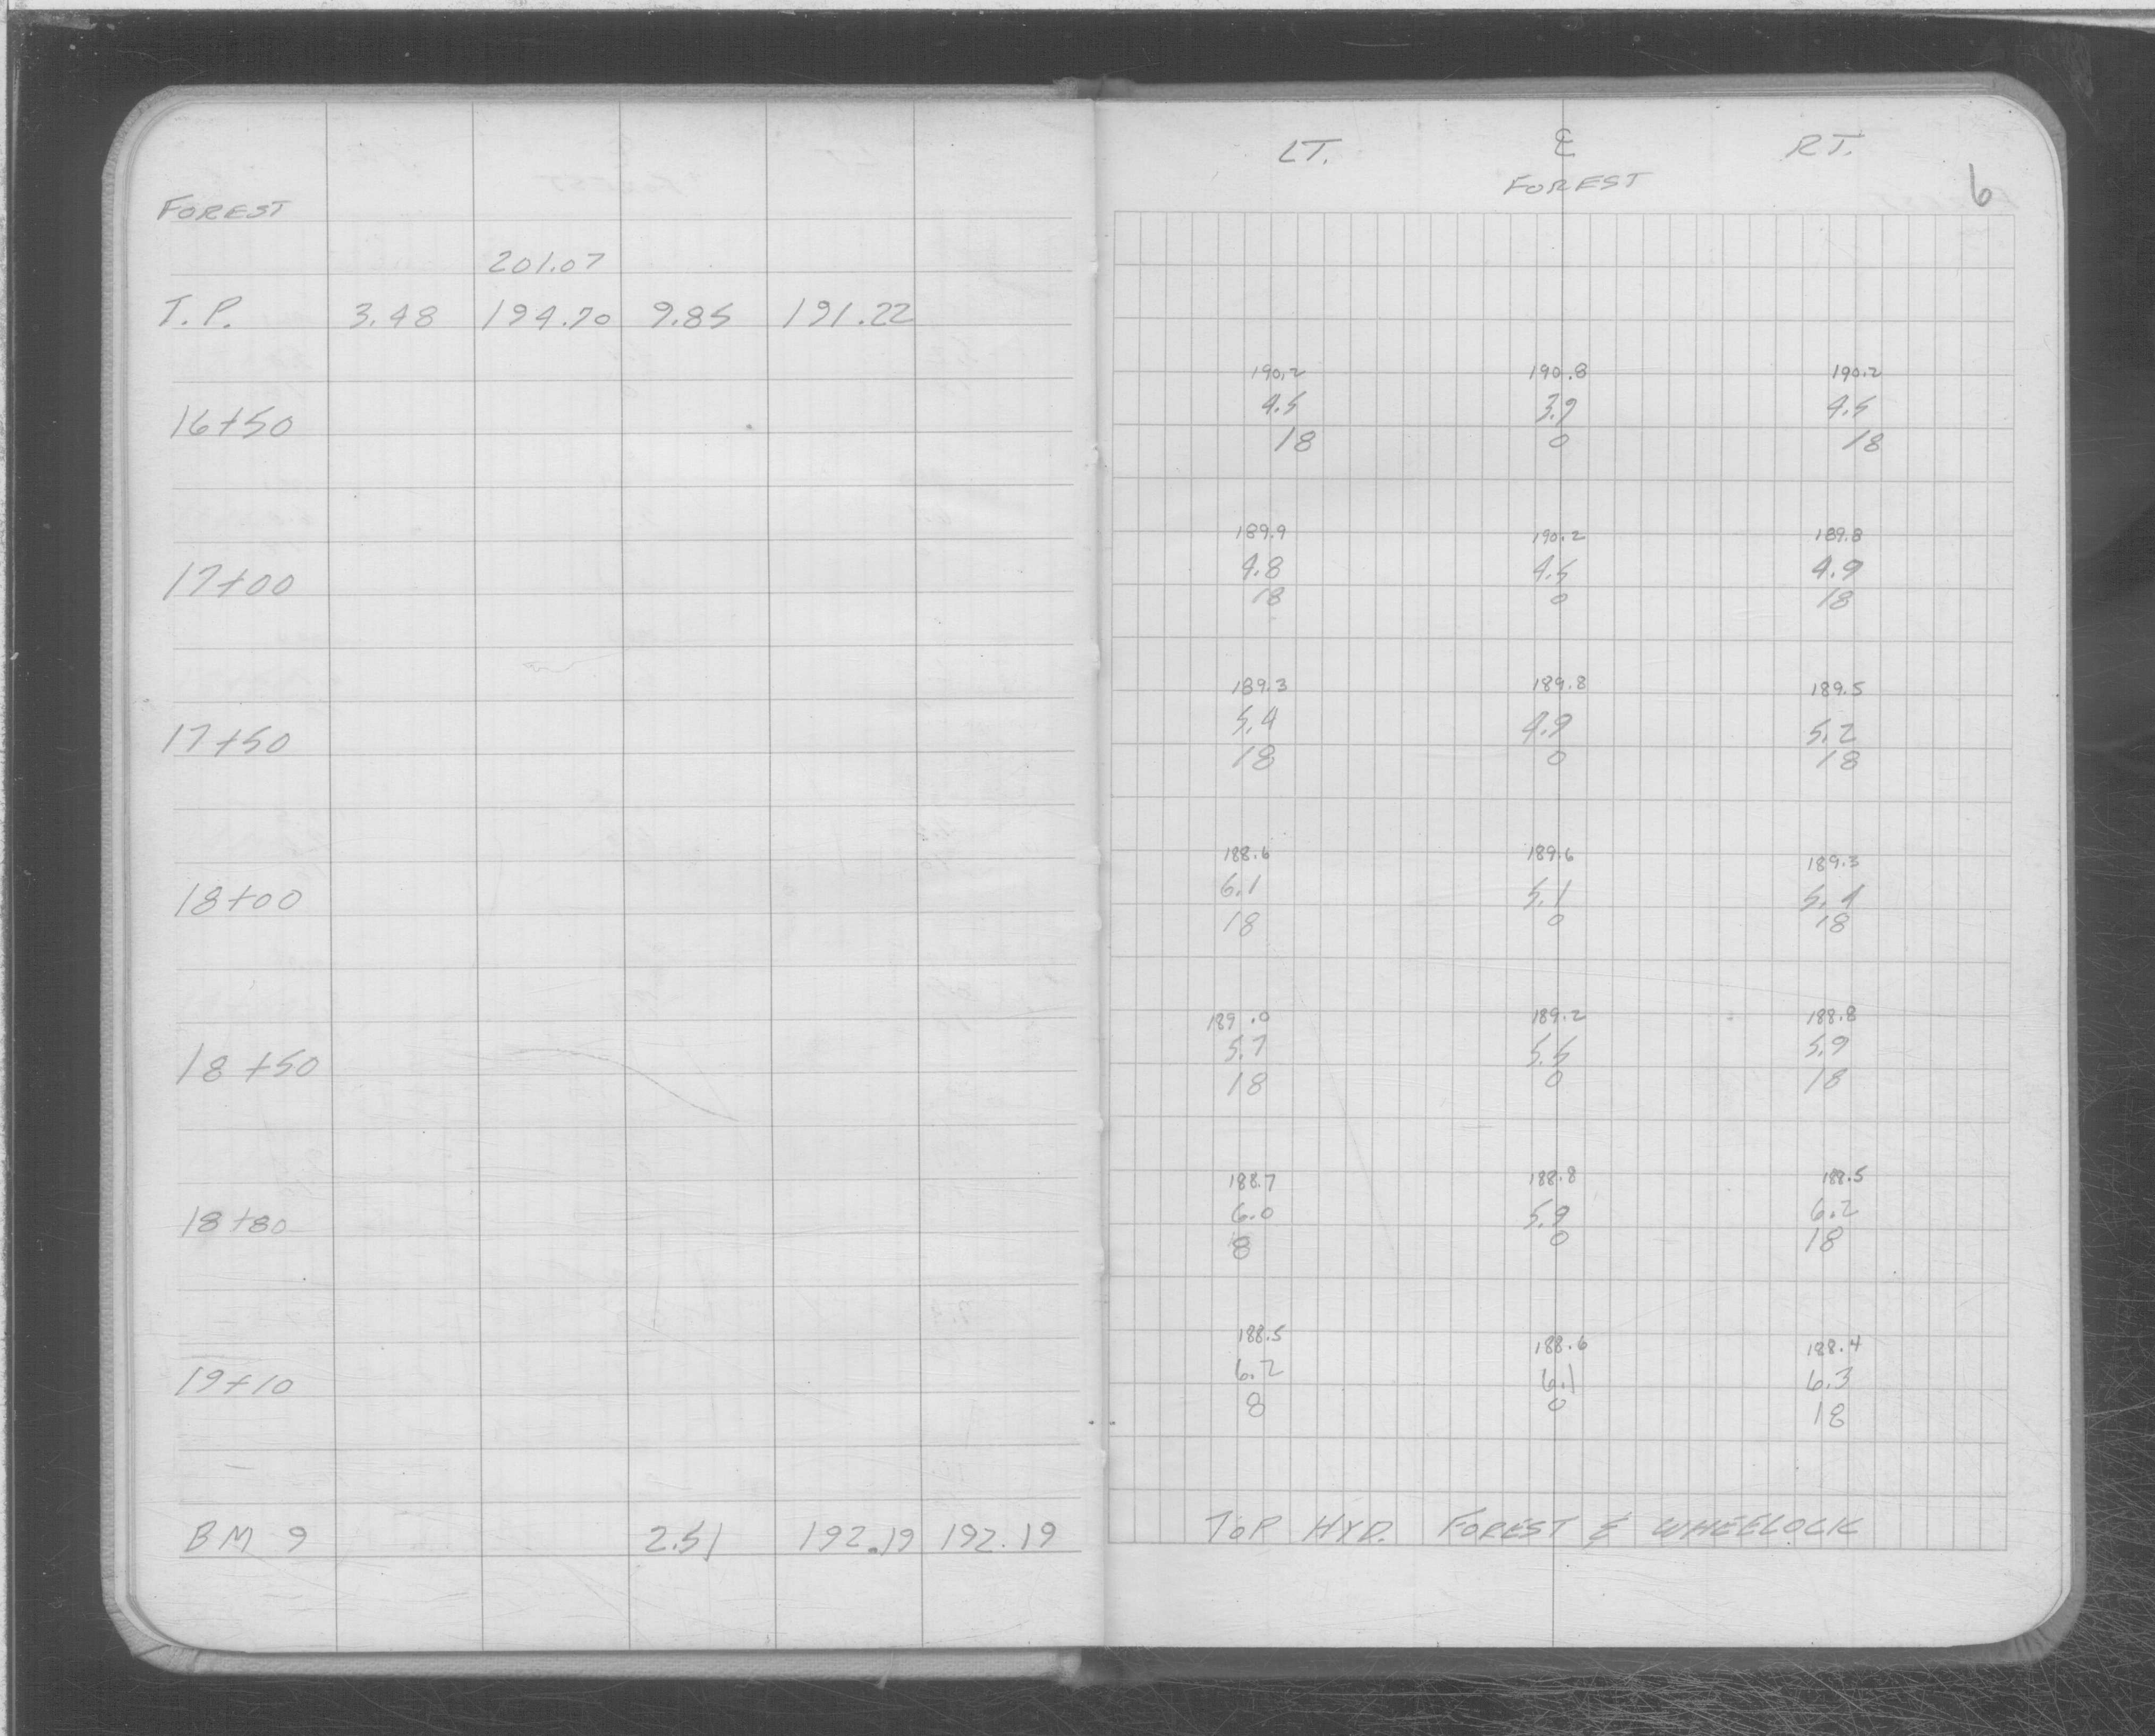 FOREST
201.07
T.P. 3.48 194.70 9.85 191.22
16+50
17+00
17+50
18+00
18+50
18+80
19+10
BM 9 2.51 192.19 192.19
LT. ℄ RT.
FOREST 6
190.2 190.8 190.2
4.5 3.9 4.5
18 0 18
189.9 190.2 189.8
4.8 4.5 4.9
18 0 18
189.3 189.8 189.5
5.4 4.9 5.2
18 0 18
188.6 189.6 189.3
6.1 5.1 5.4
18 0 18
189.0 189.2 188.8
5.7 5.5 5.9
18 0 18
188.7 188.8 188.5
6.0 5.9 6.2
8 0 18
188.5 188.6 188.4
6.2 6.1 6.3
8 0 18
TOP HYD. FOREST & WHEELOCK